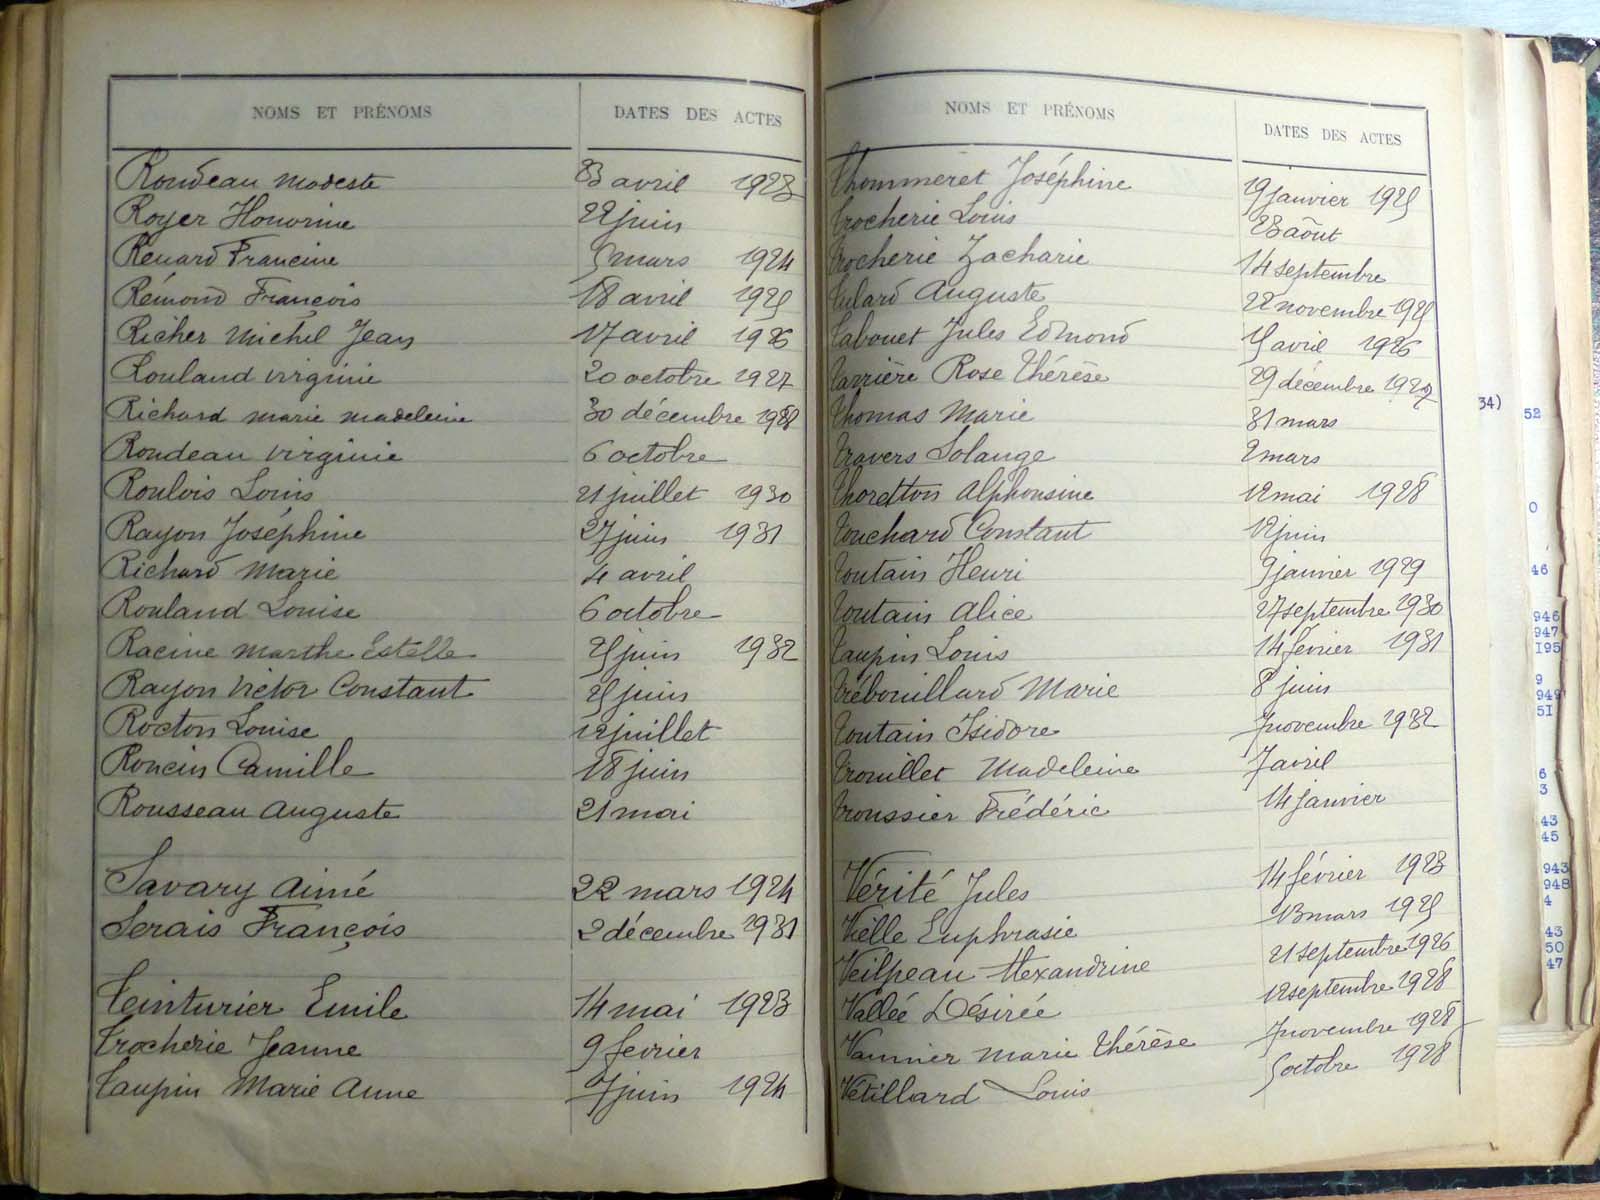 NOMS ET PRÉNOMS DATES DES ACTES
Rondeau Modeste 23 avril 1923
Royer Honorine 22 juin
Renard Francine 5 mars 1924
Rémond François 18 avril 1925
Richer Michel Jean 17 avril 1926
Rouland Virginie 20 octobre 1927
Richard Marie Madeleine 30 décembre 1928
Rondeau Virginie 6 octobre
Roulois Louis 21 juillet 1930
Rayon Joséphine 27 juin 1931
Richard Marie 4 avril
Rouland Louise 6 octobre
Racine Marthe Estelle 25 juin 1932
Rayon Victor Constant 25 juin
Rocton Louise 12 juillet
Roncin Camille 18 juin
Rousseau Auguste 21 mai
Savary Aimé 22 mars 1924
Serais François 2 décembre 1931
Teinturier Emile 14 mai 1923
Trocherie Jeanne 9 fevrier
Taupin Marie Anne 7 juin 1924
NOMS ET PRÉNOMS DATES DES ACTES
Thommeret Joséphine 19 janvier 1925
Trocherie Louis 23 aôut
Trocherie Zacharie 14 septembre
Tulard Auguste 22 novembre 1925
Tabouet Jules Edmond 15 avril 1926
Tarrière Rose Thérèse 29 décembre 1927
Thomas Marie 31 mars
Travers Solange 2 mars
Thoretton Alphonsine 12 mai 1928
Touchard Constant 12 juin
Toutain Henri 9 janvier 1929
Toutain Alice 27 septembre 1930
Taupin Louis 14 février 1931
Trébouillard Marie 8 juin
Toutain Isidore 7 novembre 1932
Trouillet Madeleine 7 avril
Troussier Frédéric 14 janvier
Vérité Jules 14 février 1923
Vielle Euphrasie 13 mars 1925
Veilpeau Alexandrine 21 septembre 1926
Vallée Désirée 12 septembre 1928
Vannier Marie Thérèse 7 novembre 1928
Vétillard Louis 5 octobre 1928
34)
52
0
46
946
947
195
9
949
51
6
3
43
45
943
948
4
43
50
47